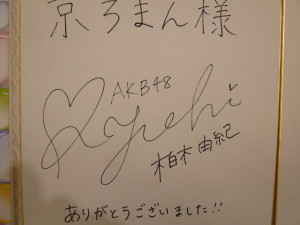 京ろまん様
AKB48
Yuki
柏木由紀
ありがとうございました!!